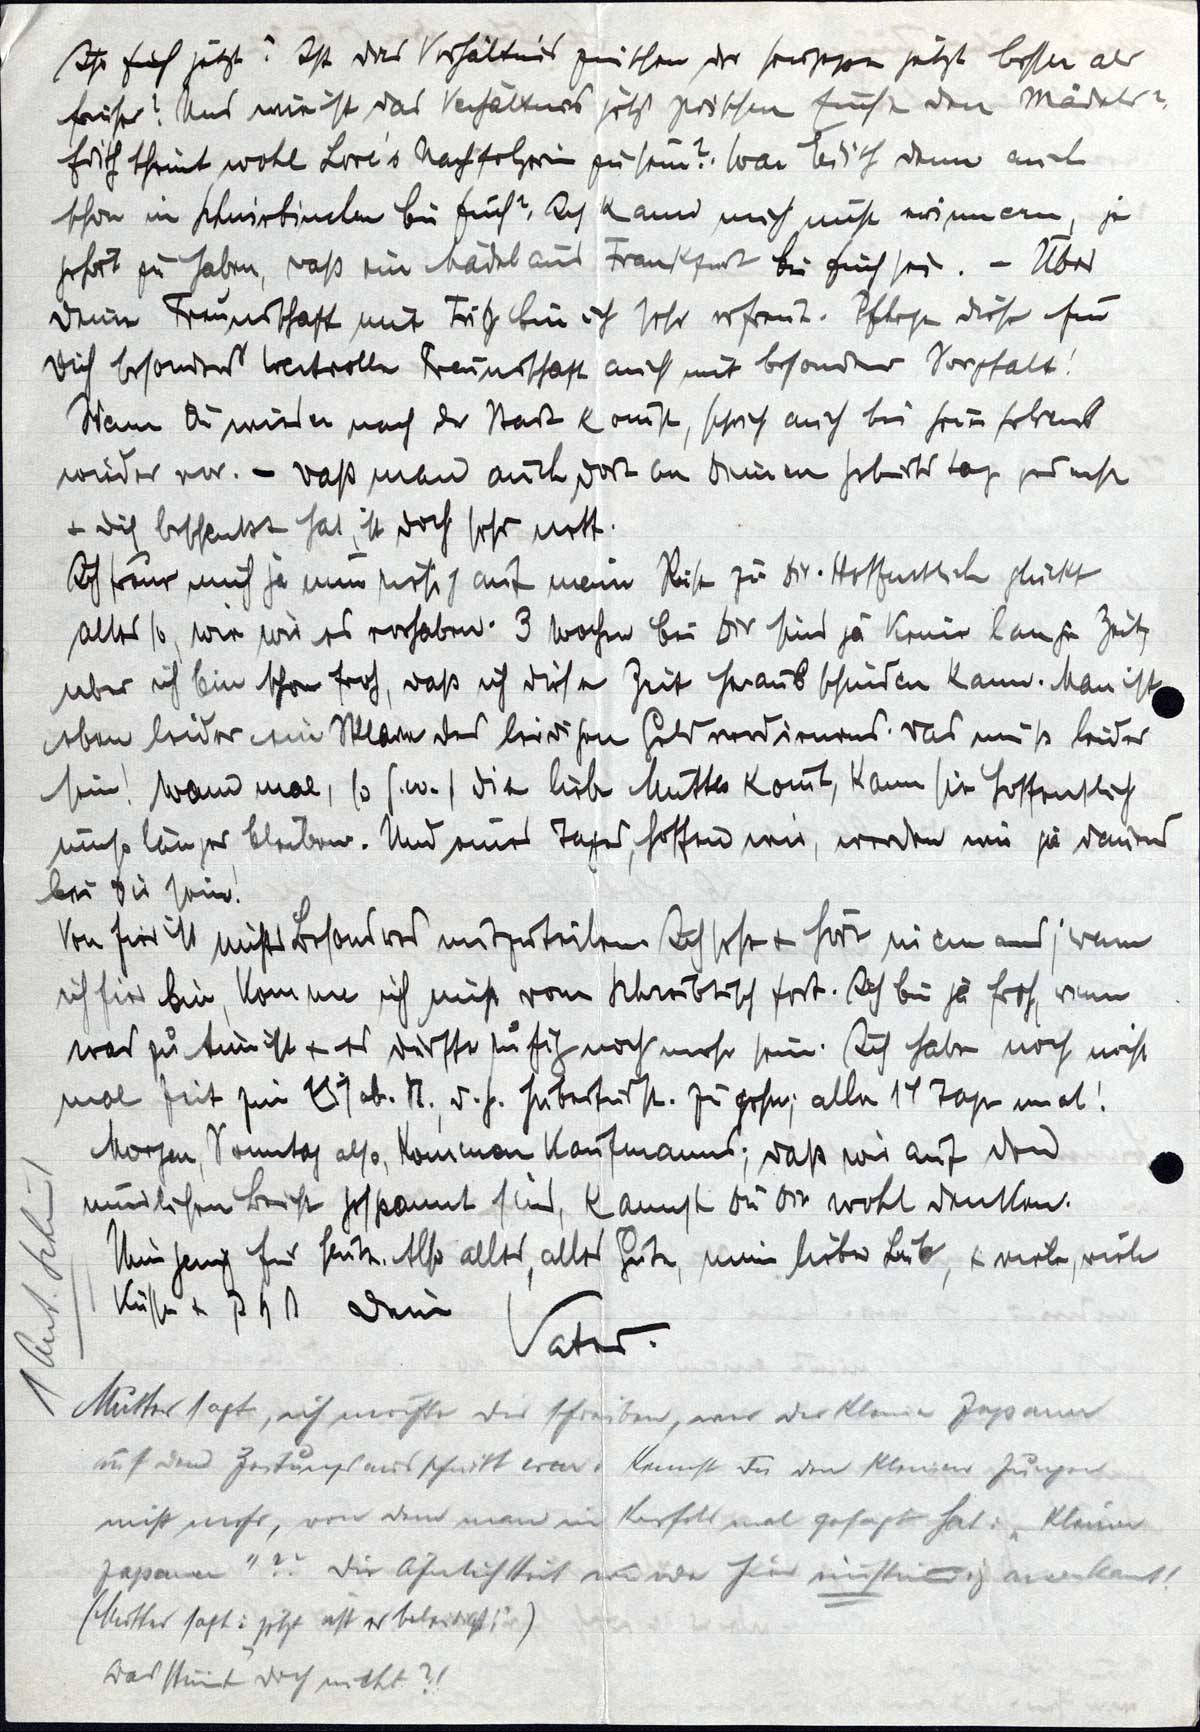 Ihr Euch jetzt? Ist das Verhältnis zwischen der Gruppe jetzt besser als
früher? Und wie ist das Verhältnis jetzt zwischen Euch & den Mädels?
Edith scheint wohl Lore's Nachfolgerin zu sein? War Edith denn auch
schon in Schniebinchen bei Euch? Ich kann mich nicht erinnern, je
gehört zu haben, daß ein Mädel aus Frankfurt bei Euch sei. – Über
Deine Freundschaft mit Fritz bin ich sehr erfreut. Pflege diese für
Dich besonders wertvolle Freundschaft auch mit besonderer Sorgfalt!
Wenn Du wieder nach der Stadt komst, sprich auch bei
wieder vor. – Daß man auch dort an Deinen Geburtstag gedacht
& Dich beschenkt hat, ist doch sehr nett.
Ich freue mich ja nun riesig auf meine Reise zu Dir. Hoffentlich glückt
alles so, wie wir es vorhaben. 3 Wochen bei Dir sind ja keine lange Zeit,
aber ich bin schon froh, daß ich diese Zeit herausschinden kann. Man ist
eben leider ein Sklave des leidigen Geldverdienens. Das muß leider
sein! Wann mal, so G. w., die liebe Mutter komt, kann sie hoffentlich
länger bleiben. Und eines Tages, hoffen wir, werden wir ja dauernd
bei Dir sein!
Von hier ist nichts Besonderes mitzuteilen. Ich sehe & höre niemand; wenn
ich hier bin, komme ich nicht vom Schreibtisch fort. Ich bin ja froh, wenn
was zu tun ist & es dürfte ruhig noch mehr sein. Ich habe noch nicht
mal Zeit zum ab. zu gehen; alle 14 Tage mal!
Morgen, Sonntag also, kommen Kaufmanns; daß wir auf den
mündlichen Bericht gespannt sind, kannst Du Dir wohl denken.
Nun genug für heute. Also alles, alles Gute, mein lieber Bub, & viele, viele
Küsse & Dein
Vater.
1 Ant. Schein!
Mutter sagt, ich möchte Dir schreiben, wer der kleine Japaner
auf dem Zeitungsausschnitt war. Kennst Du den kleinen Jungen
nicht mehr, von dem man in mal gesagt hat: „Kleiner
Japaner"?? Die Ähnlichkeit wurde hier einstimmig anerkannt!
(Mutter sagt: jetzt ist er beleidigt!)
Das stimt doch nicht?!